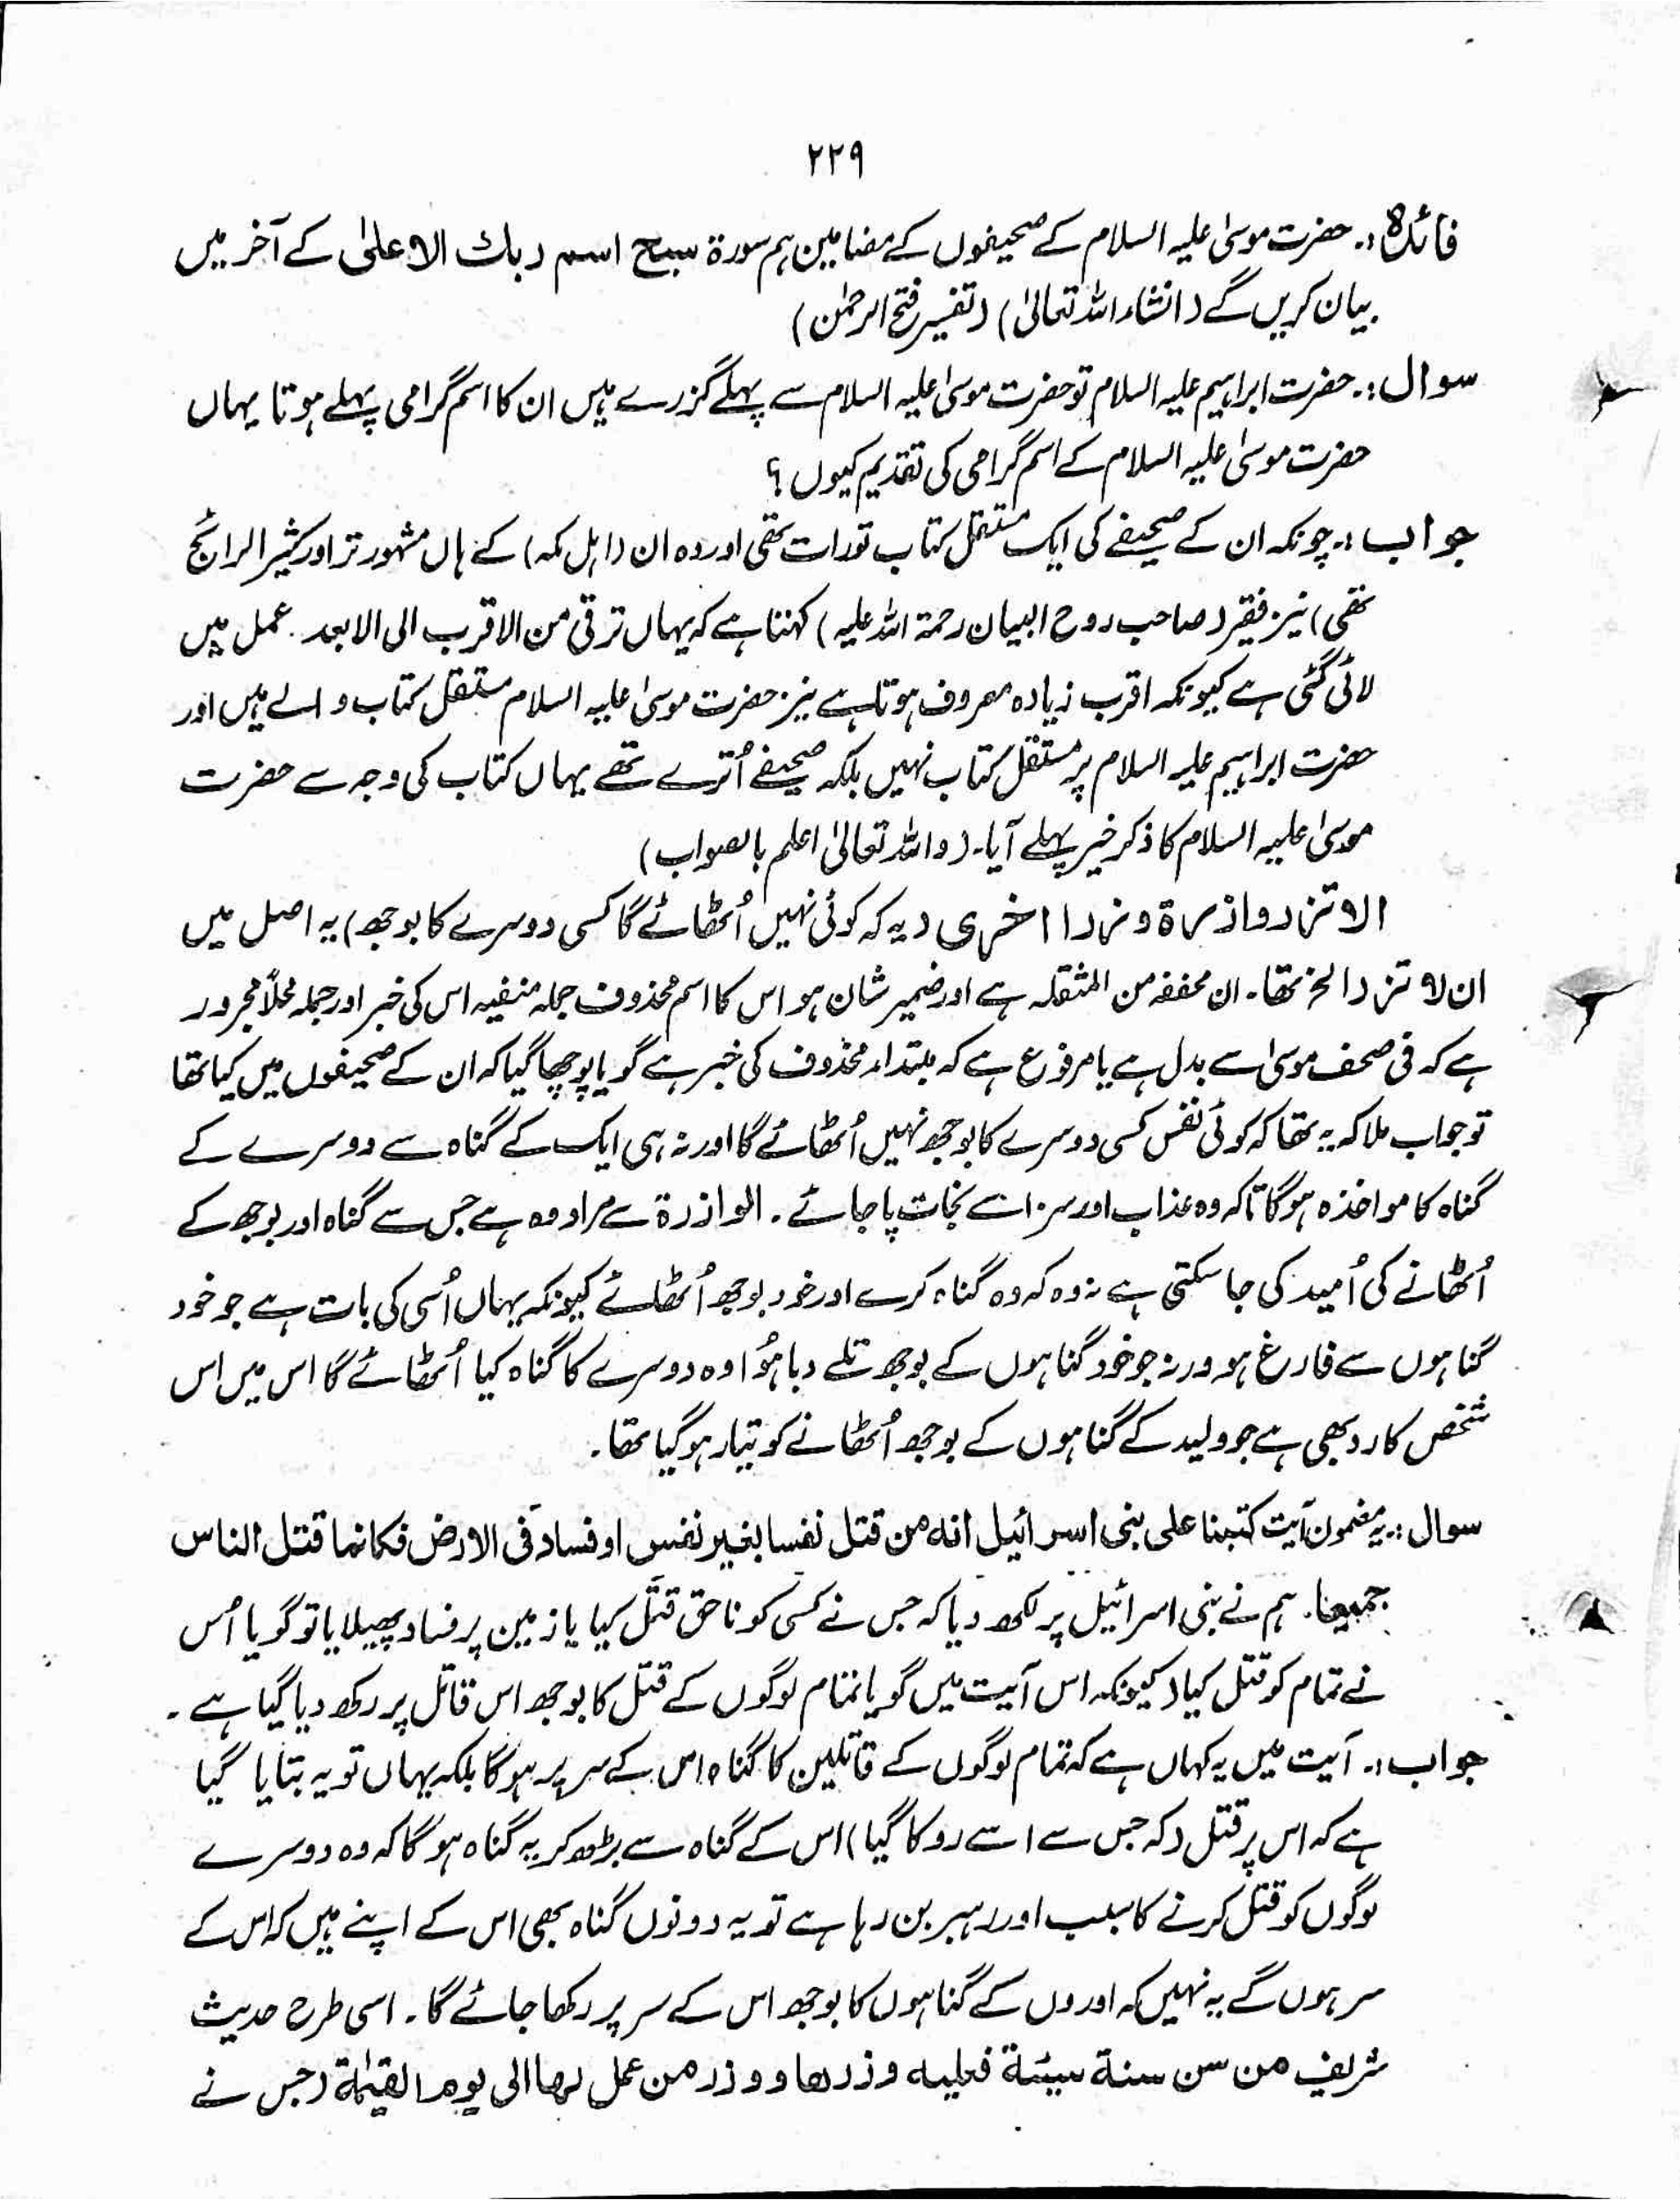 ۲۲۹
فائدہ :۔ حضرت موسیٰ علیہ السلام کے صحیفوں کے مضامین ہم سورۃ سبح اسم ربك الاعلیٰ کے آخر میں
بیان کریں گے (انشاء اللہ تعالیٰ) (تفسیر فتح الرحمٰن)
سوال :۔ حضرت ابراہیم علیہ السلام تو حضرت موسیٰ علیہ السلام سے پہلے گزرے ہیں ان کا اسم گرامی پہلے ہوتا یہاں
حضرت موسیٰ علیہ السلام کے اسم گرامی کی تقدیم کیوں ؟
جواب :۔ چونکہ ان کے صحیفے کی ایک مستقل کتاب تورات تھی اور وہ ان (اہل مکہ) کے ہاں مشہور تر اور کثیر الرائج
تھی) نیز فقیر (صاحب روح البیان رحمۃ اللہ علیہ) کہتا ہے کہ یہاں ترقی من الاقرب الی الابعد ۔ عمل میں
لائی گئی ہے کیونکہ اقرب زیادہ معروف ہوتا ہے نیز حضرت موسیٰ علیہ السلام مستقل کتاب والے ہیں اور
حضرت ابراہیم علیہ السلام پر مستقل کتاب نہیں بلکہ صحیفے اُترے تھے یہاں کتاب کی وجہ سے حضرت
موسیٰ علیہ السلام کا ذکر خیر پہلے آیا۔ (واللہ تعالیٰ اعلم بالصواب)
الا تزر وازرۃ وزر ا اخری (یہ کہ کوئی نہیں اُٹھائے گا کسی دوسرے کا بوجھ) یہ اصل میں
ان لا تزر الخ تھا۔ ان مخففہ من المثقلہ ہے اور ضمیر شان ہو اس کا اسم محذوف جملہ منفیہ اس کی خبر اور جملہ محلاً مجرور
ہے کہ فی صحف موسیٰ سے بدل ہے یا مرفوع ہے کہ مبتداء محذوف کی خبر ہے گویا پوچھا گیا کہ ان کے صحیفوں میں کیا تھا
تو جواب ملا کہ یہ تھا کہ کوئی نفس کسی دوسرے کا بوجھ نہیں اُٹھائے گا اور نہ ہی ایک کے گناہ سے دوسرے کے
گناہ کا مواخذہ ہو گا تاکہ وہ عذاب اور سزا سے نجات پا جائے ۔ الوازرۃ سے مراد وہ ہے جس سے گناہ اور بوجھ کے
اُٹھانے کی اُمید کی جا سکتی ہے نہ وہ کہ وہ گناہ کرے اور خود بوجھ اُٹھائے کیونکہ یہاں اُسی کی بات ہے جو خود
گناہوں سے فارغ ہو ورنہ جو خود گناہوں کے بوجھ تلے دبا ہُوا وہ دوسرے کا گناہ کیا اُٹھائے گا اس میں اس
شخص کا رد بھی ہے جو ولید کے گناہوں کے بوجھ اُٹھانے کو تیار ہو گیا تھا ۔
سوال :۔ یہ مضمون آیت کتبنا علی بنی اسرائیل انہ من قتل نفسا بغیر نفس او فساد فی الارض فکانما قتل الناس
جمیعا۔ ہم نے بنی اسرائیل پر لکھ دیا کہ جس نے کسی کو ناحق قتل کیا یا زمین پر فساد پھیلایا تو گویا اُس
نے تمام کو قتل کیا (کیونکہ اس آیت میں گویا تمام لوگوں کے قتل کا بوجھ اس قاتل پر رکھ دیا گیا ہے ۔
جواب :۔ آیت میں یہ کہاں ہے کہ تمام لوگوں کے قاتلین کا گناہ اس کے سر پر ہو گا بلکہ یہاں تو یہ بتایا گیا
ہے کہ اس پر قتل (کہ جس سے اسے روکا گیا) اس کے گناہ سے بڑھ کر یہ گناہ ہو گا کہ وہ دوسرے
لوگوں کو قتل کرنے کا سبب اور راہبر بن رہا ہے تو یہ دونوں گناہ بھی اس کے اپنے ہیں کہ اس کے
سر ہوں گے یہ نہیں کہ اوروں کے گناہوں کا بوجھ اس کے سر پر رکھا جائے گا۔ اسی طرح حدیث
شریف من سن سنة سيئة فعليه وزرها ووزر من عمل بها الى يوم القيٰمة (جس نے